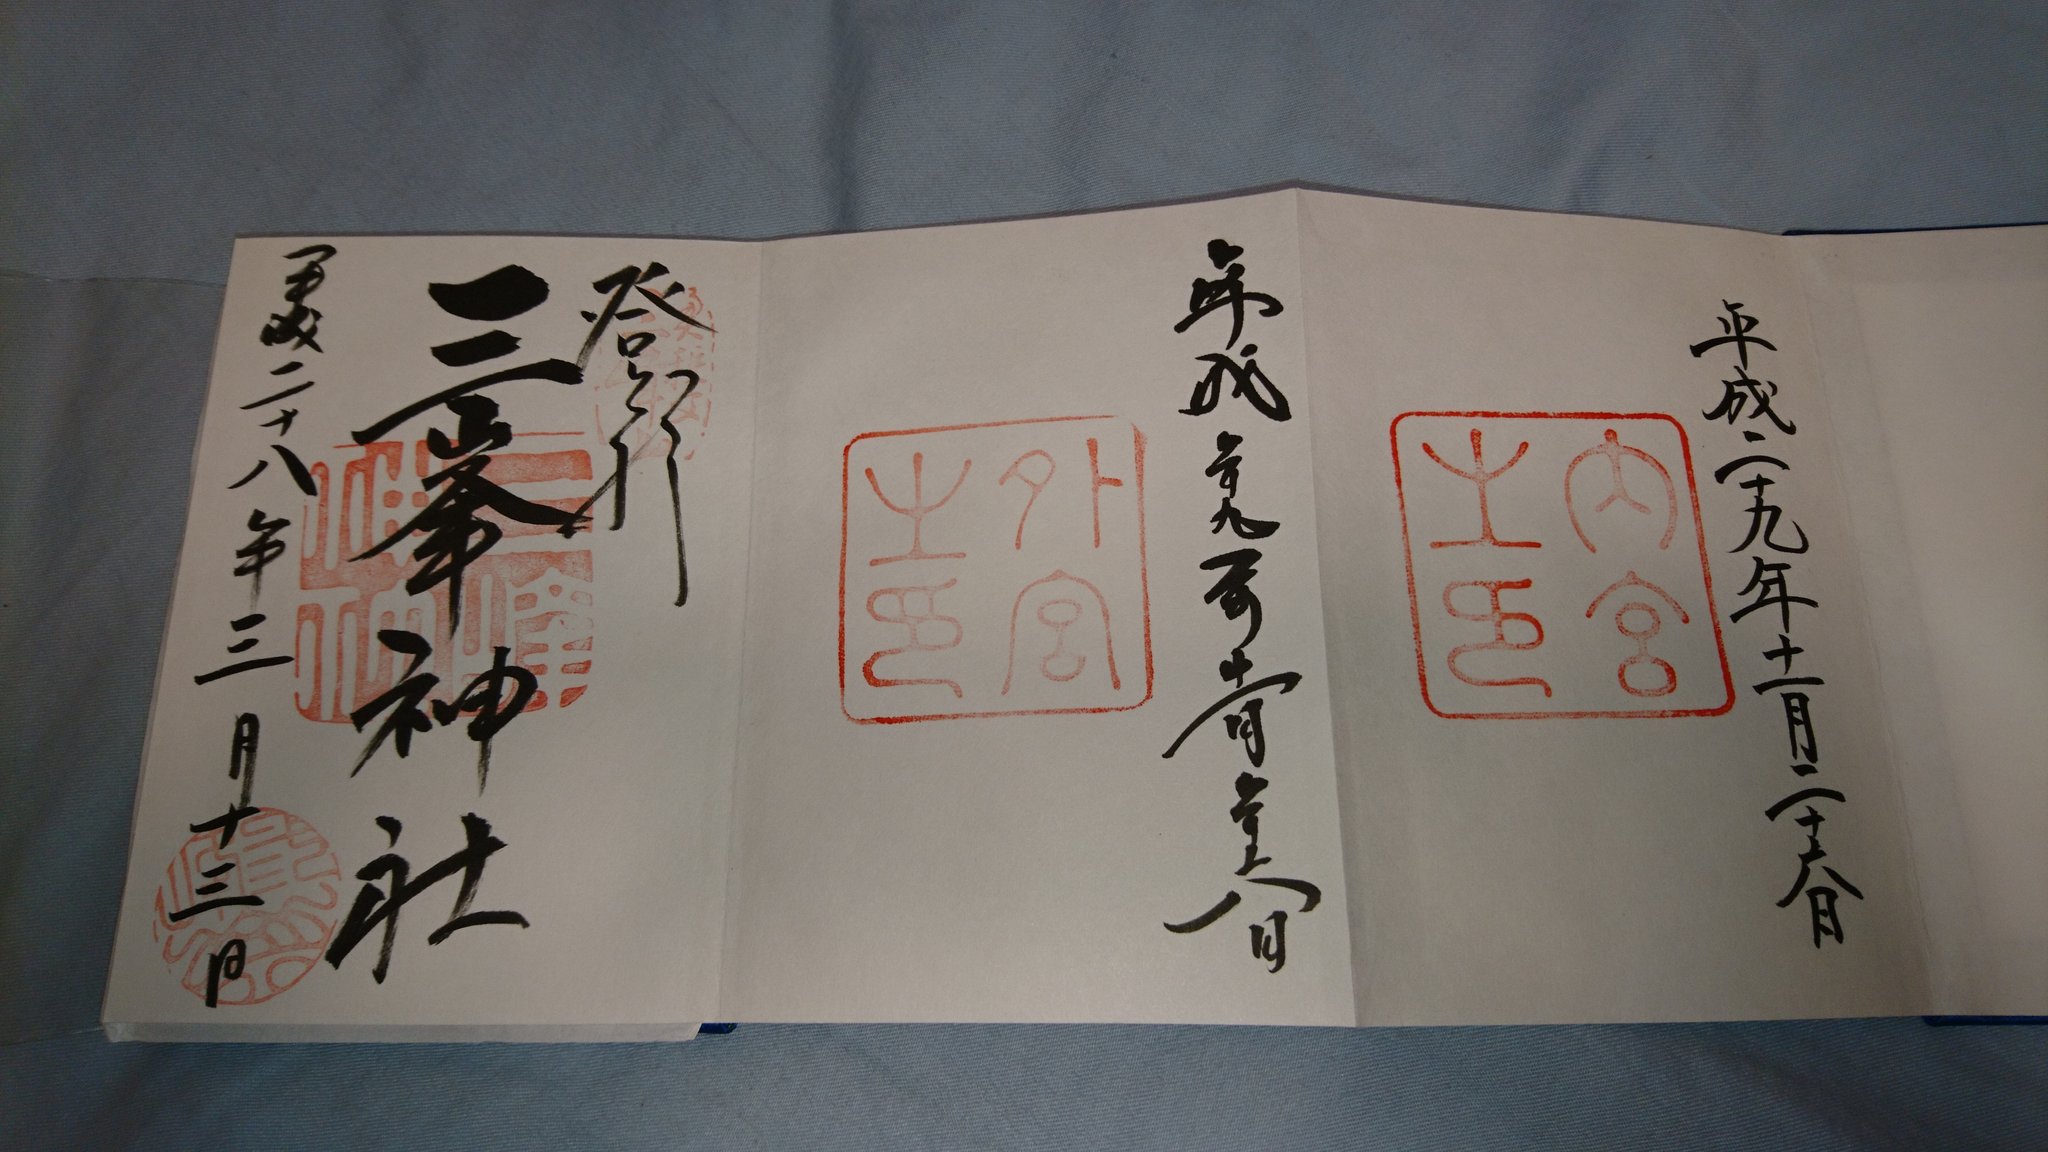 平成二十九年十一月二十六日
内宮
之印
平成二十九年十一月二十六日
外宮
之印
登拝
三峯神社
平成二十八年三月十三日